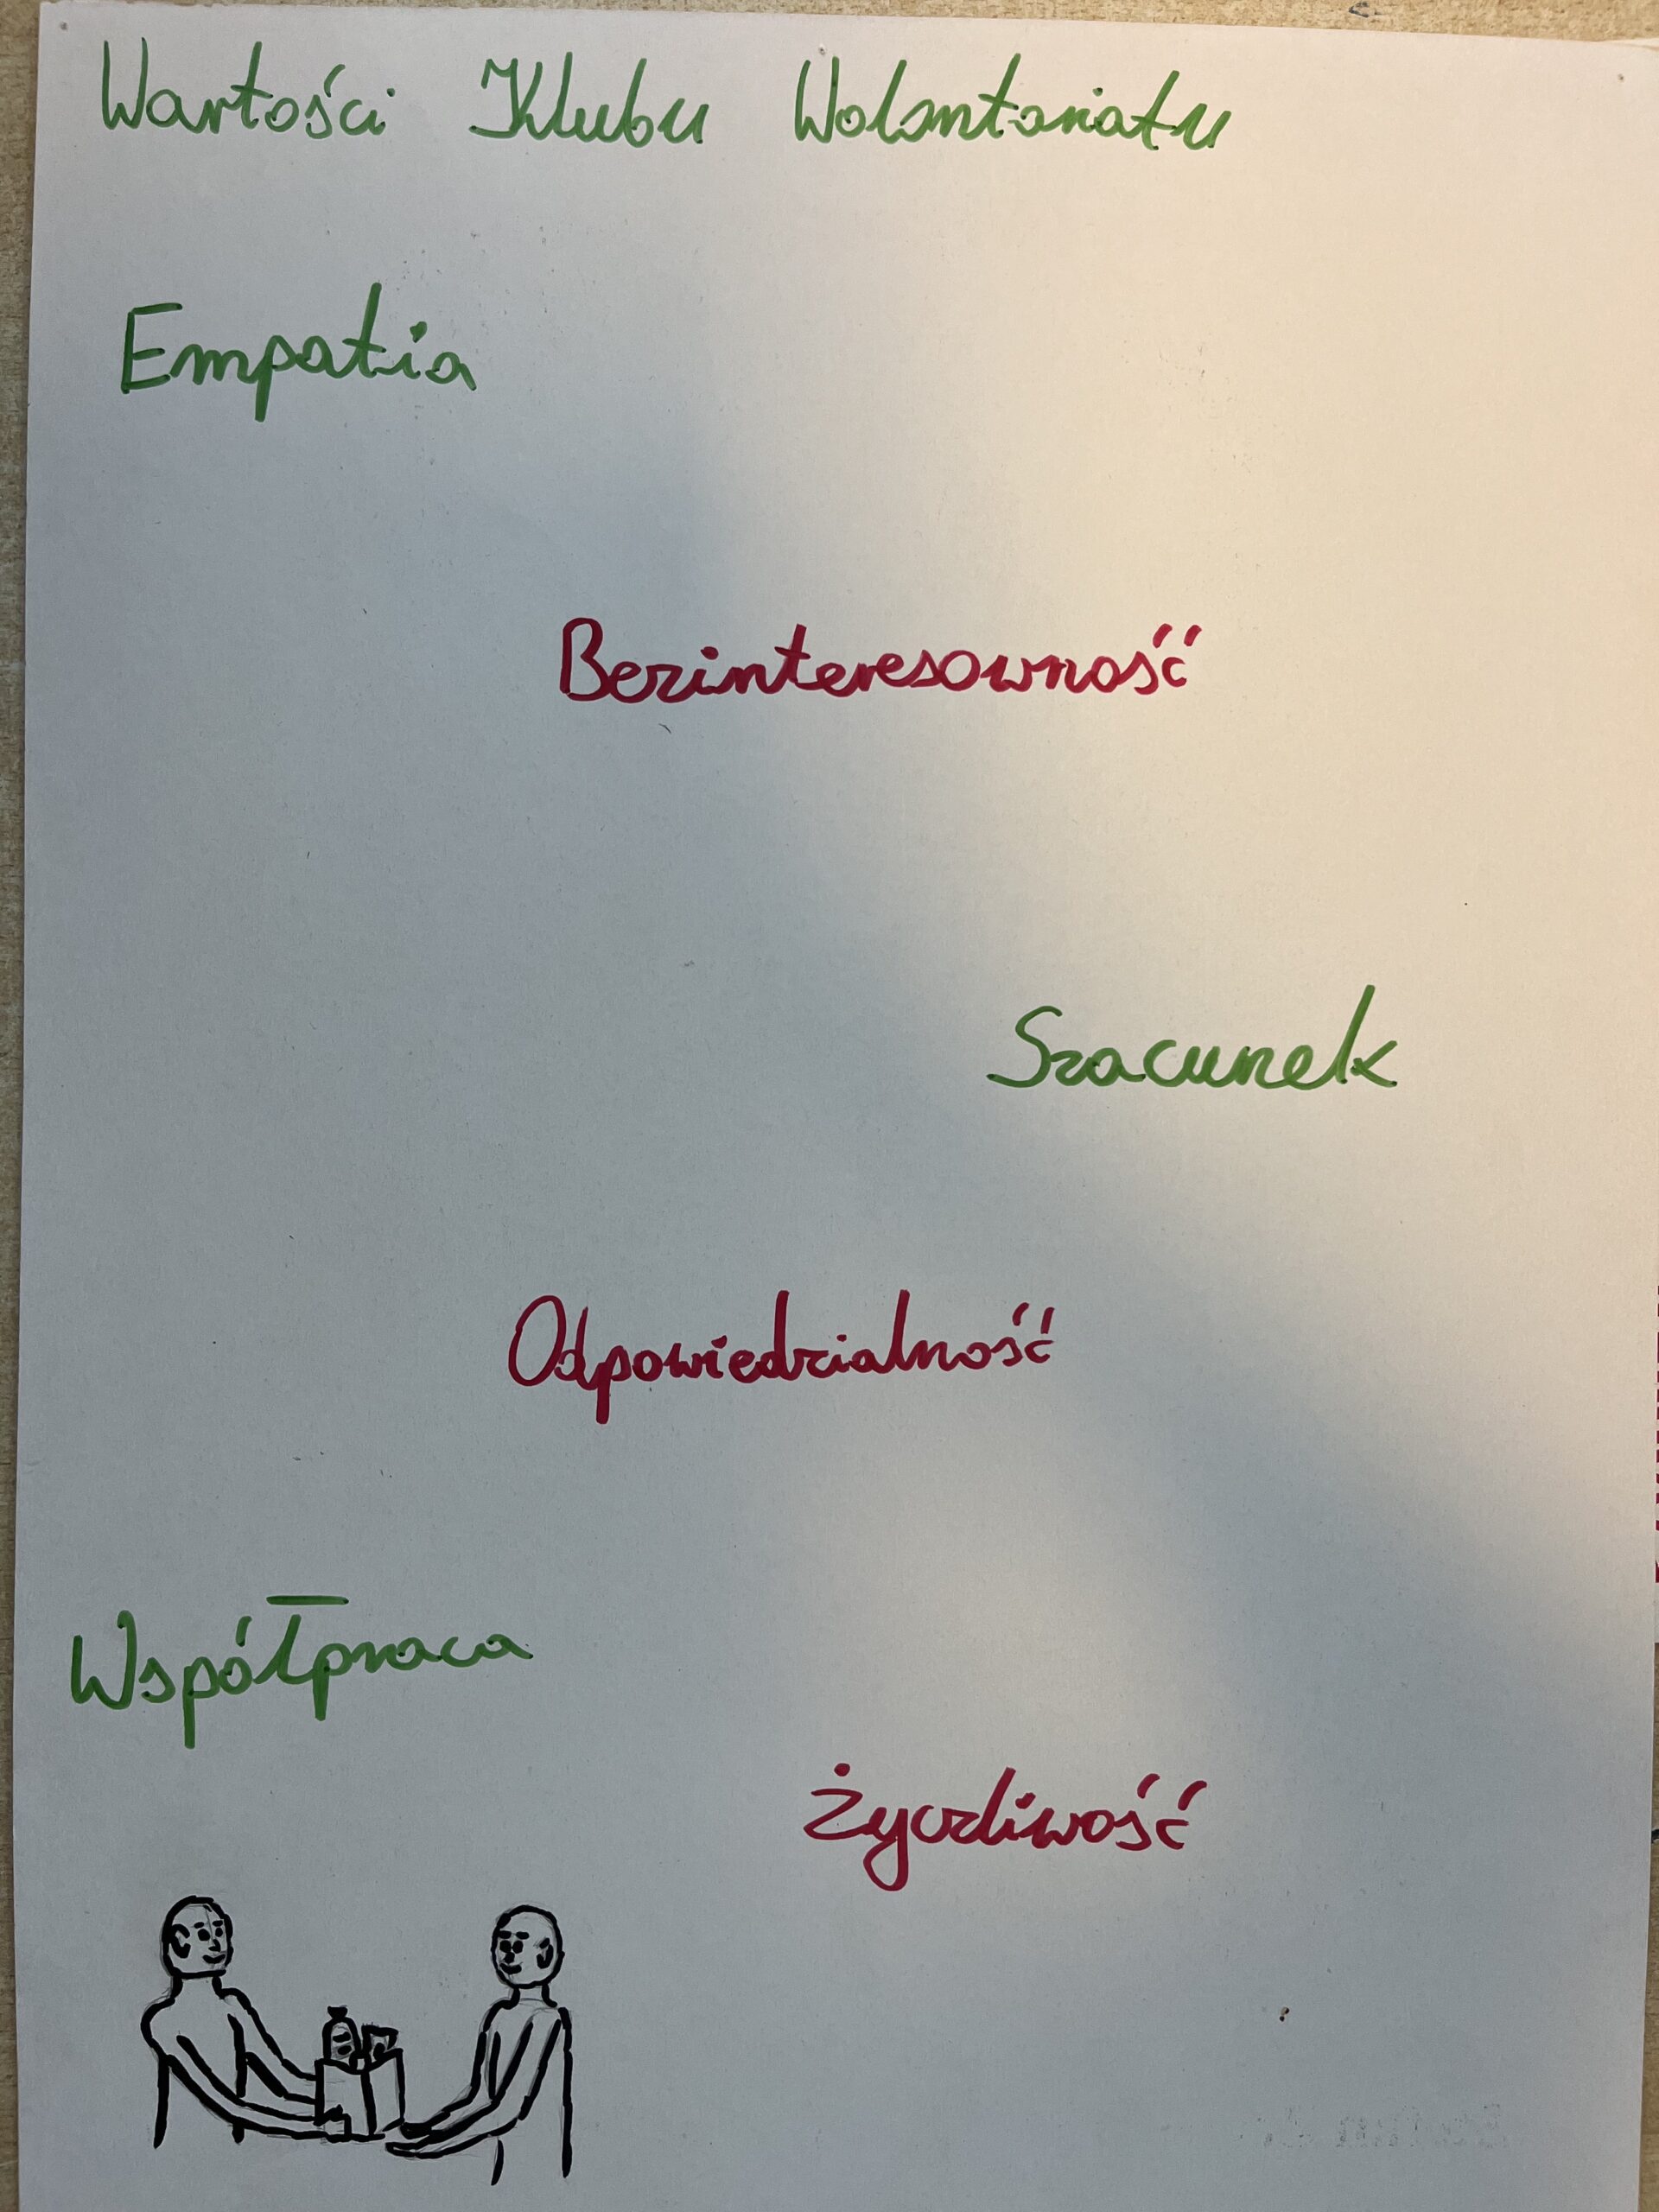 Wartości Klubu Wolontariatu
Empatia
Bezinteresowność
Szacunek
Odpowiedzialność
Współpraca
Życzliwość